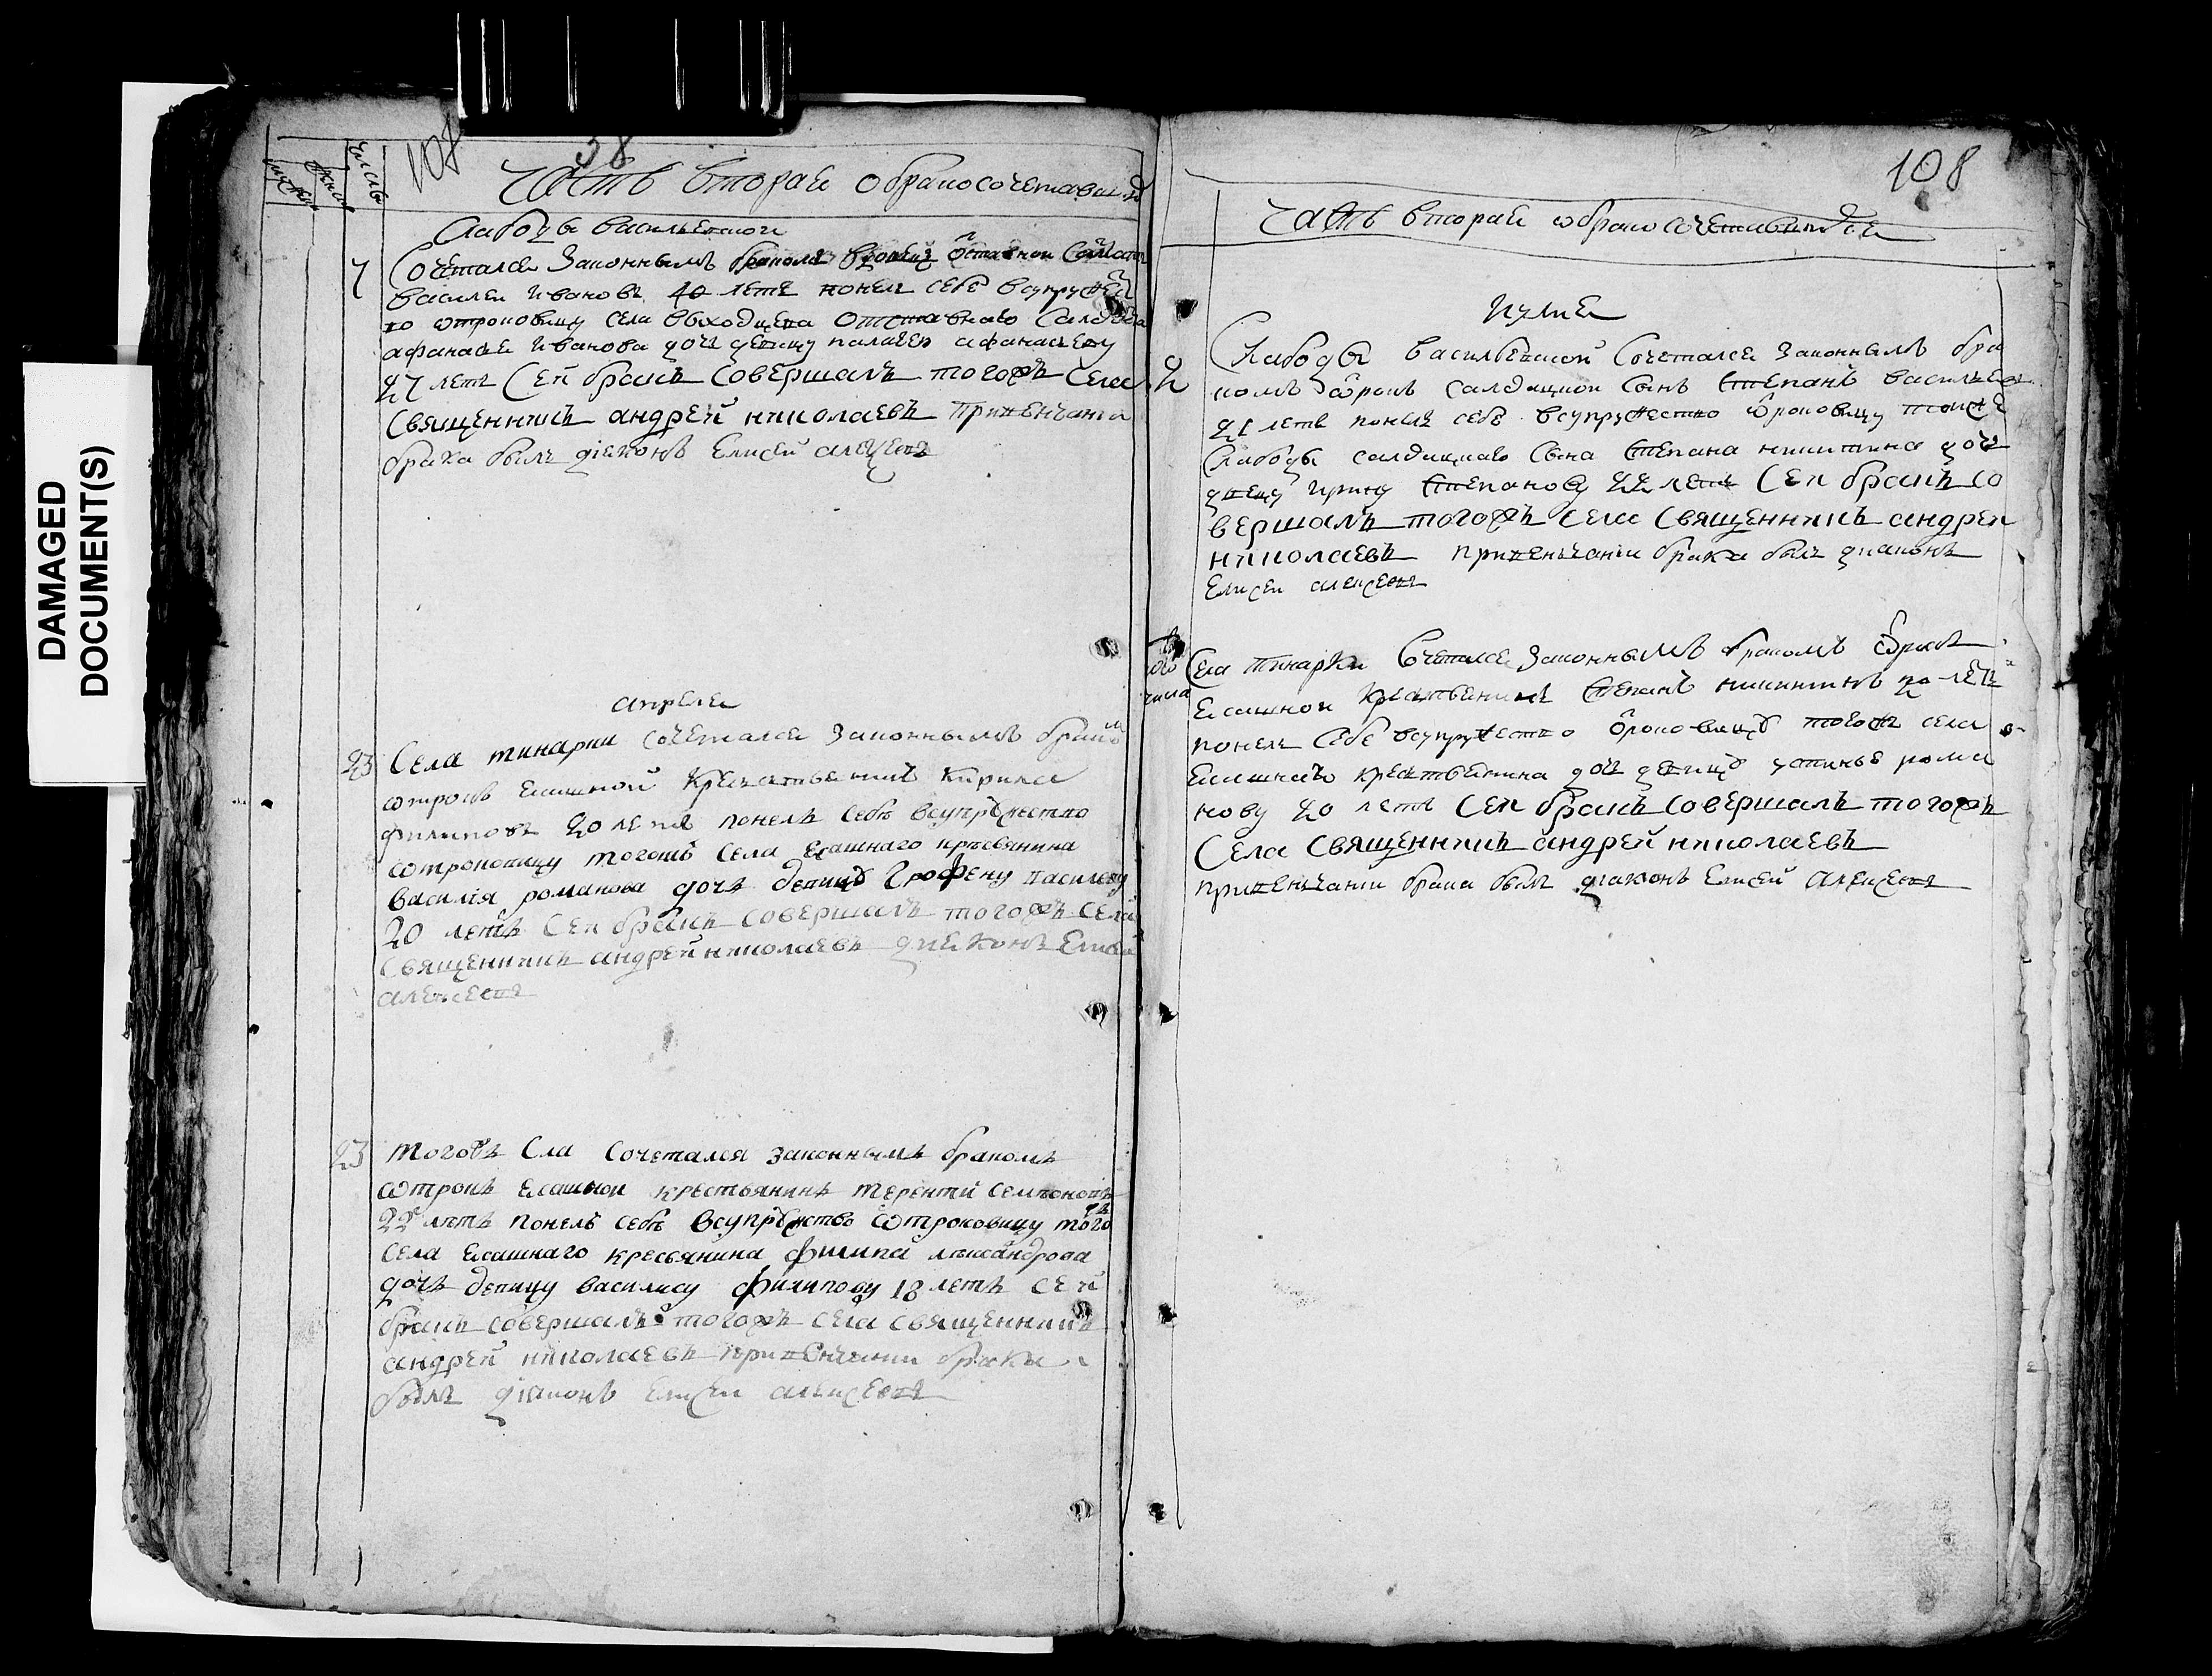 DAMAGED
DOCUMENT(S)
числа
108
38
часть вторая о бракосочетавшихся
Слабоды васильевской
7
Сочетался Законнымъ бракомъ вдовецъ отставной Салдатъ
василеи Ивановъ 40 летъ понелъ себе всупружес
во отроковицу села выходцева Отставнаго Салдата
афанасея Иванова дочъ девицу палагею афанасеву
27 летъ Сей бракъ Совершалъ тогожъ Села
Священникъ андрей николаевъ Привенчани
брака былъ діаконъ Елисей алексеевъ
апреля
23
Села тинарки сочетался законнымъ бракомъ
отрокъ Ясашной Крестьенинъ Кирила
филиповъ 20 летъ понелъ себѣ всупружество
отроковицу тогожъ Села ясашнаго кресьянина
василія романова дочъ девицу Грофену василеву
20 летъ Сеи бракъ совершалъ тогожъ Села
Священникъ андрей николаевъ диеконъ Елисей
алексеевъ
23
тогожъ Сла сочетался законнымъ бракомъ
отрокъ Ясашнои крестьянинъ терентй Семионовъ
22 летъ понелъ себѣ всупружство отроковицу тогожъ
села ясашнаго кресьянина филипа лександрова
дочъ девицу василису филипову 18 летъ сей
бракъ совершалъ тогожъ села священникъ
андрей николаевъ привенчании брака
былъ діаконъ Елисеи алексеевъ
108
часть вторая о бракосочетавшихся
Июлия
2
Слабоды васильевской Сочетался законнымъ бра
комъ отрокъ салдацкой Сынъ Степанъ васильевъ
21 летъ понелъ себе всупружество отроковицу тоейже
Слабоды салдацкаго Сына Степана никитина дочъ
девицу ирину Степанову 22 летъ Сеи бракъ со
вершалъ тогожъ Села Священникъ андреи
николаевъ привенчании брака былъ диаконъ
Елисеи алексеевъ
того
числа
Села тинарки Сочетался Законнымъ бракомъ отрокъ
Ясашнои Крестьенинъ Степанъ никитинъ 20 летъ
понелъ Себе всупружество отроковицу тогожъ села
ясашнаго крестьенина дочъ девицу устинье рома
нову 20 летъ Сеи бракъ совершалъ тогожъ
Села Священникъ андрей николаевъ
привенчании брака былъ диаконъ Елисей Алексеевъ